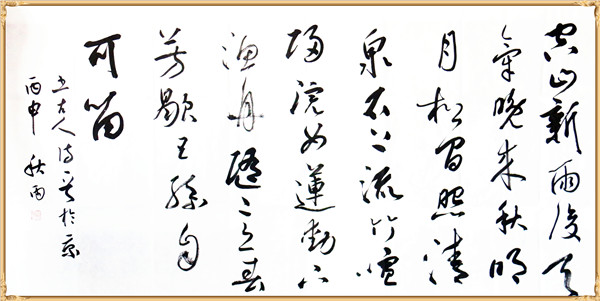 空山新雨後天
氣晚来秋明
月松間照清
泉石上流竹喧
歸浣女蓮動下
漁舟隨意春
芳歇王孫自
可留
书古人诗一首於京
丙申 秋雨